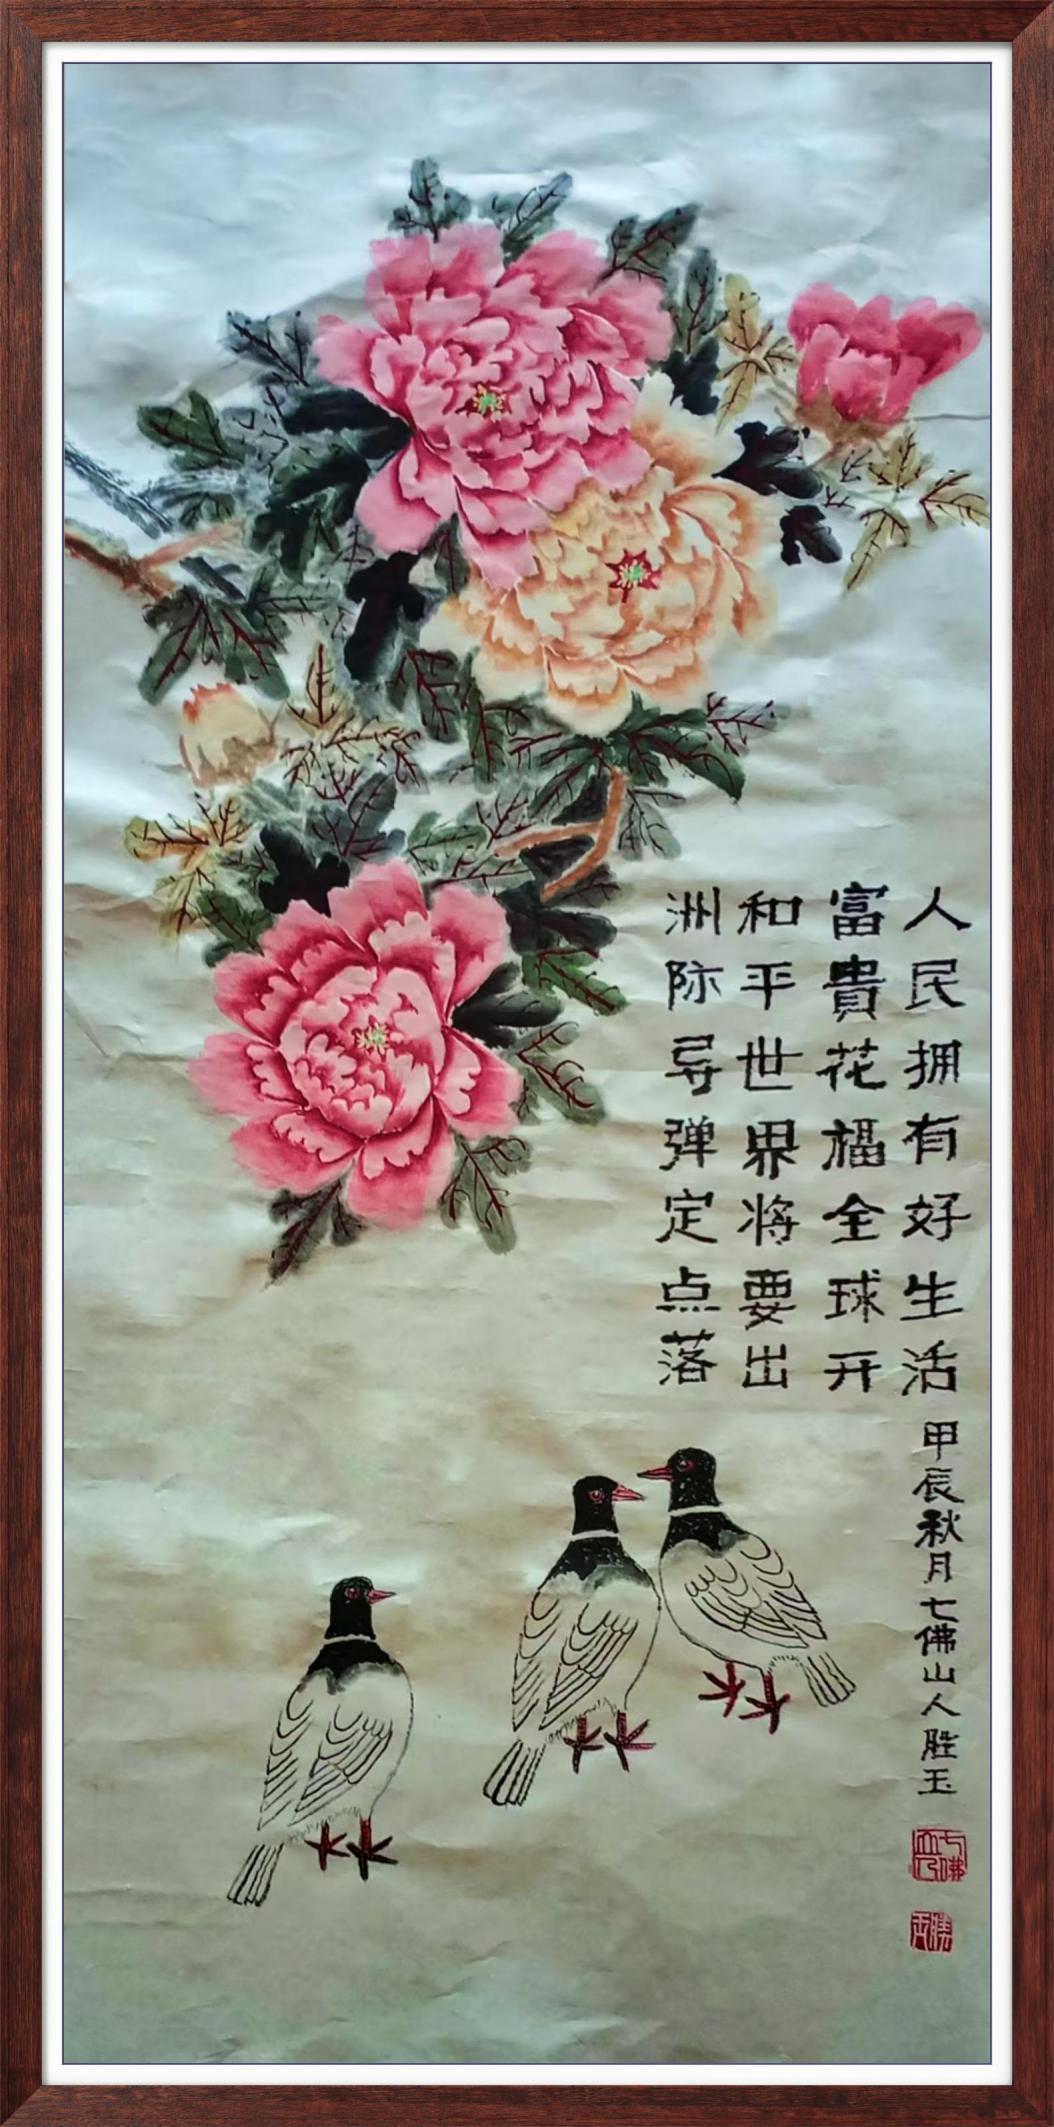 洲际导弹定点落
和平世界将要出
富貴花福全球开
人民拥有好生活
甲辰秋月七佛山人胜玉
七佛山人
勝玉